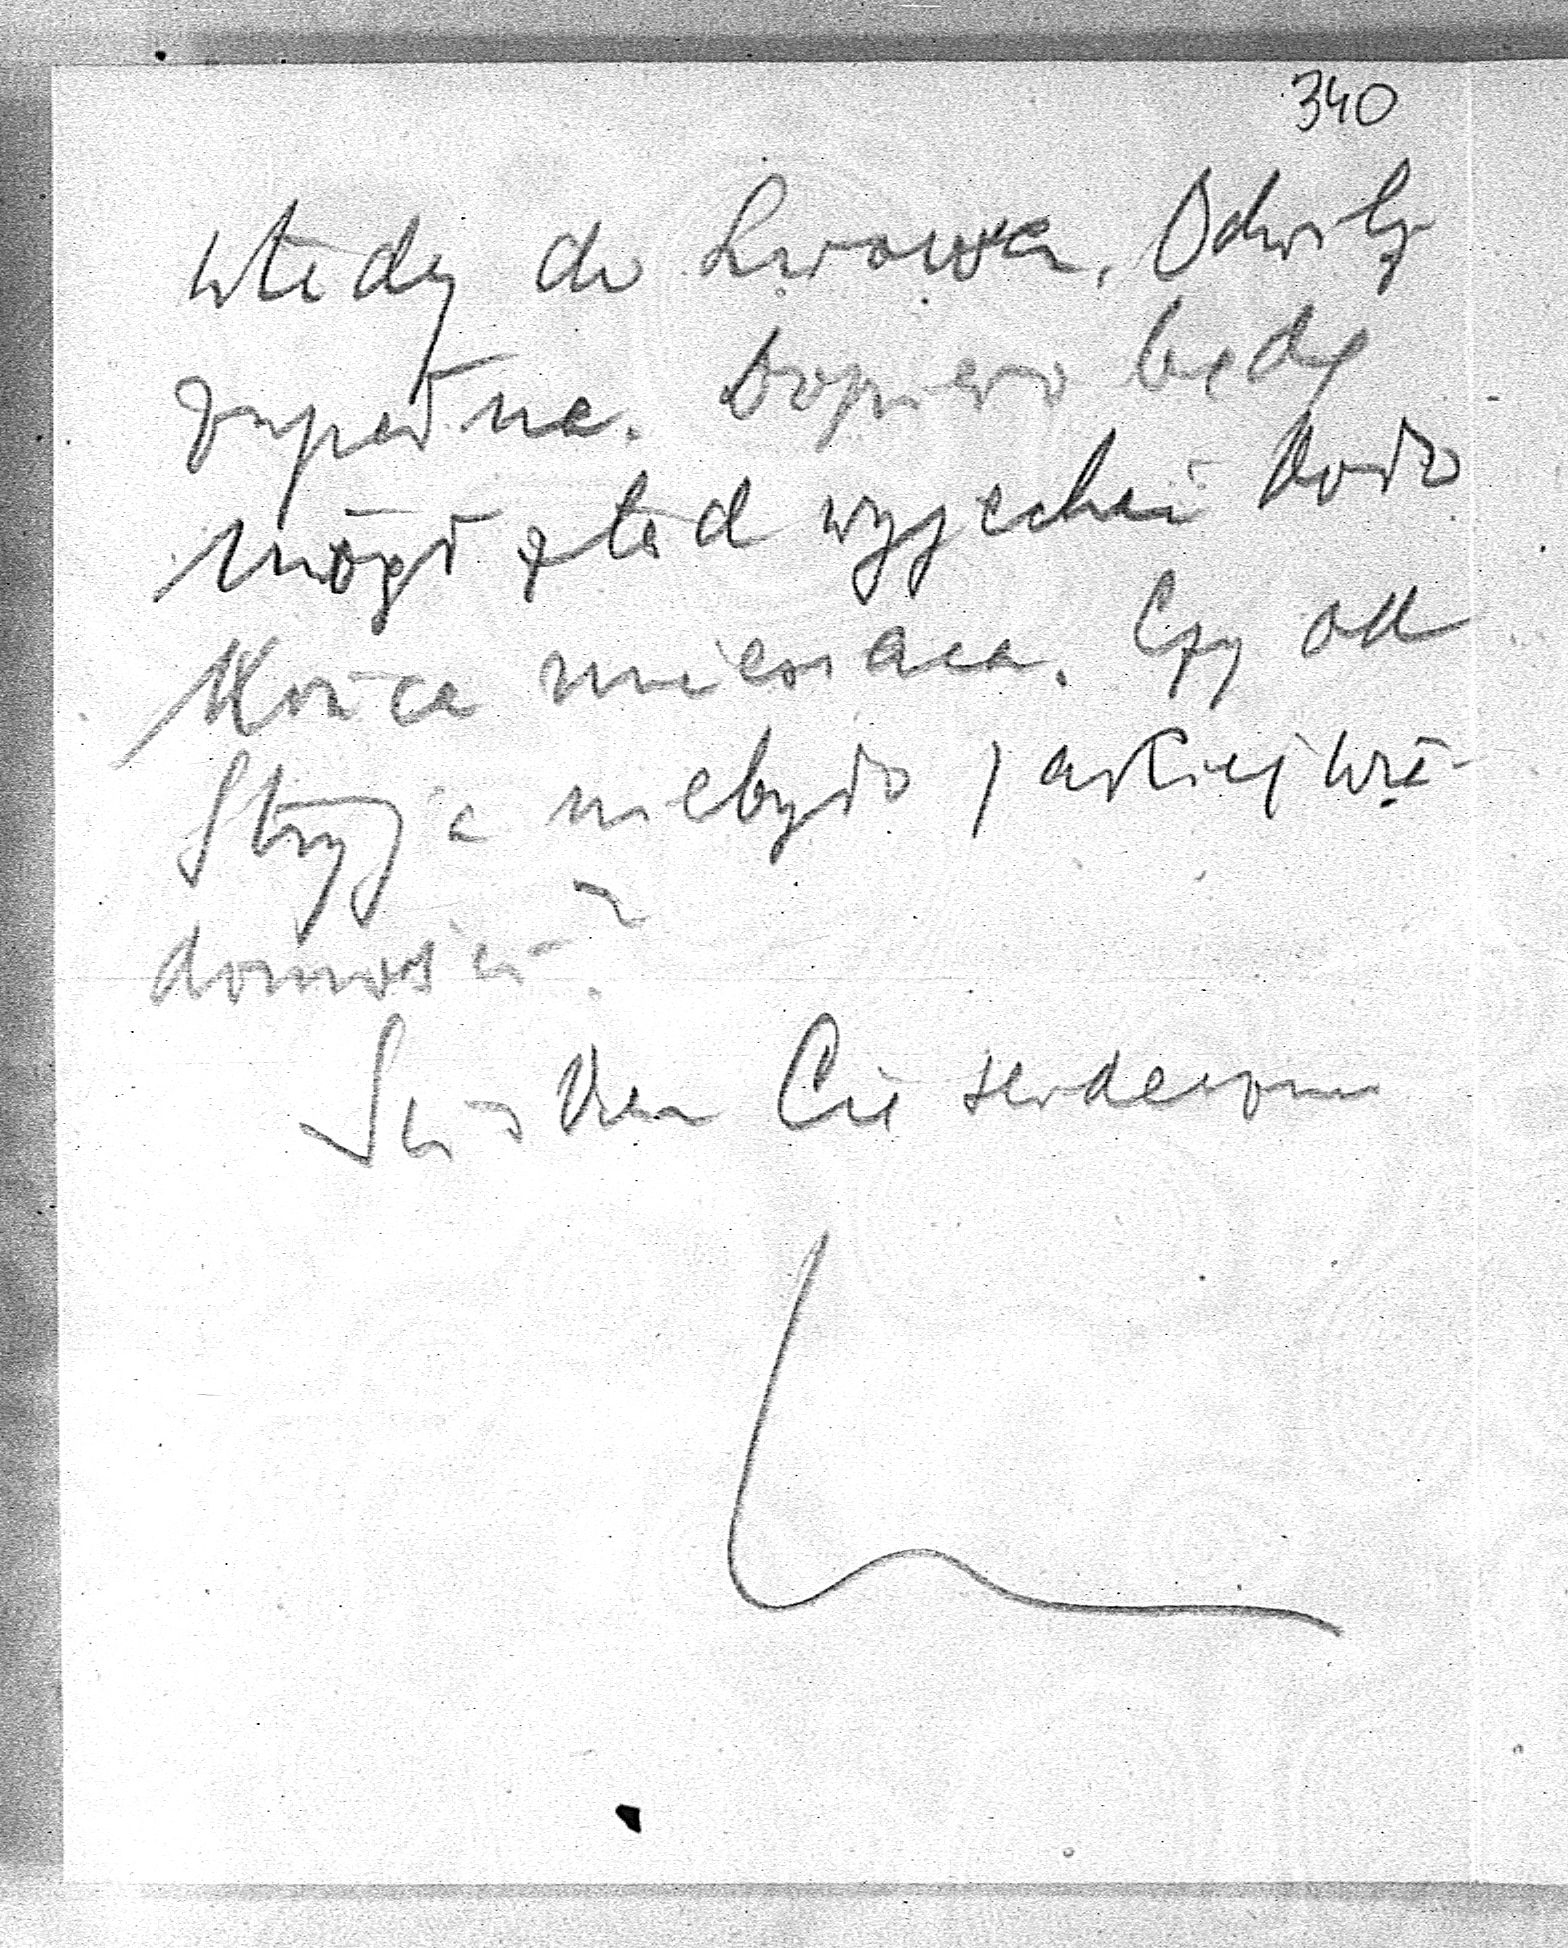 340
wtedy do Lwowa. Odwilż
zupełna. Dopiero będę
mógł ztąd wyjechać koło
końca miesiąca. Czy od
Stryja niebyło jakiej wia-
domości?
Ściskam Cię serdecznie